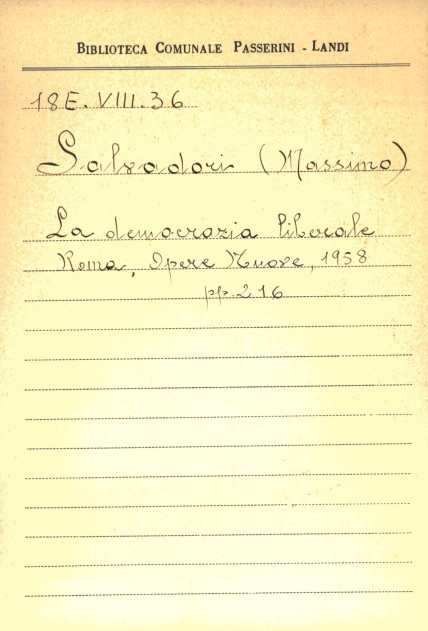 BIBLIOTECA COMUNALE PASSERINI - LANDI
18E. VIII. 36
Salvadori (Massimo)
La democrazia liberale
Roma, Opere Nuove, 1958
pp. 216